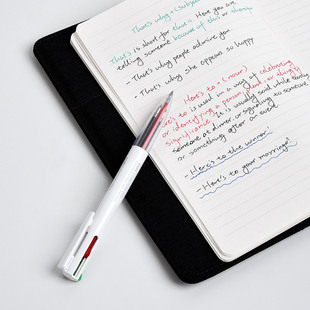 That's why + (subject
That's is short for that is. Here you are
telling someone because of this or though
- That's why people admire you
- That's why she appears so happy
Here's to Here's to + (noun)
is used in a way of celebrating
or identifying a person (idea or thing)'s
significance. It is usually said while toasting
someone at dinner or signing to someone
or something after an event.
- Here's to the winner!
- Here's to your marriage!